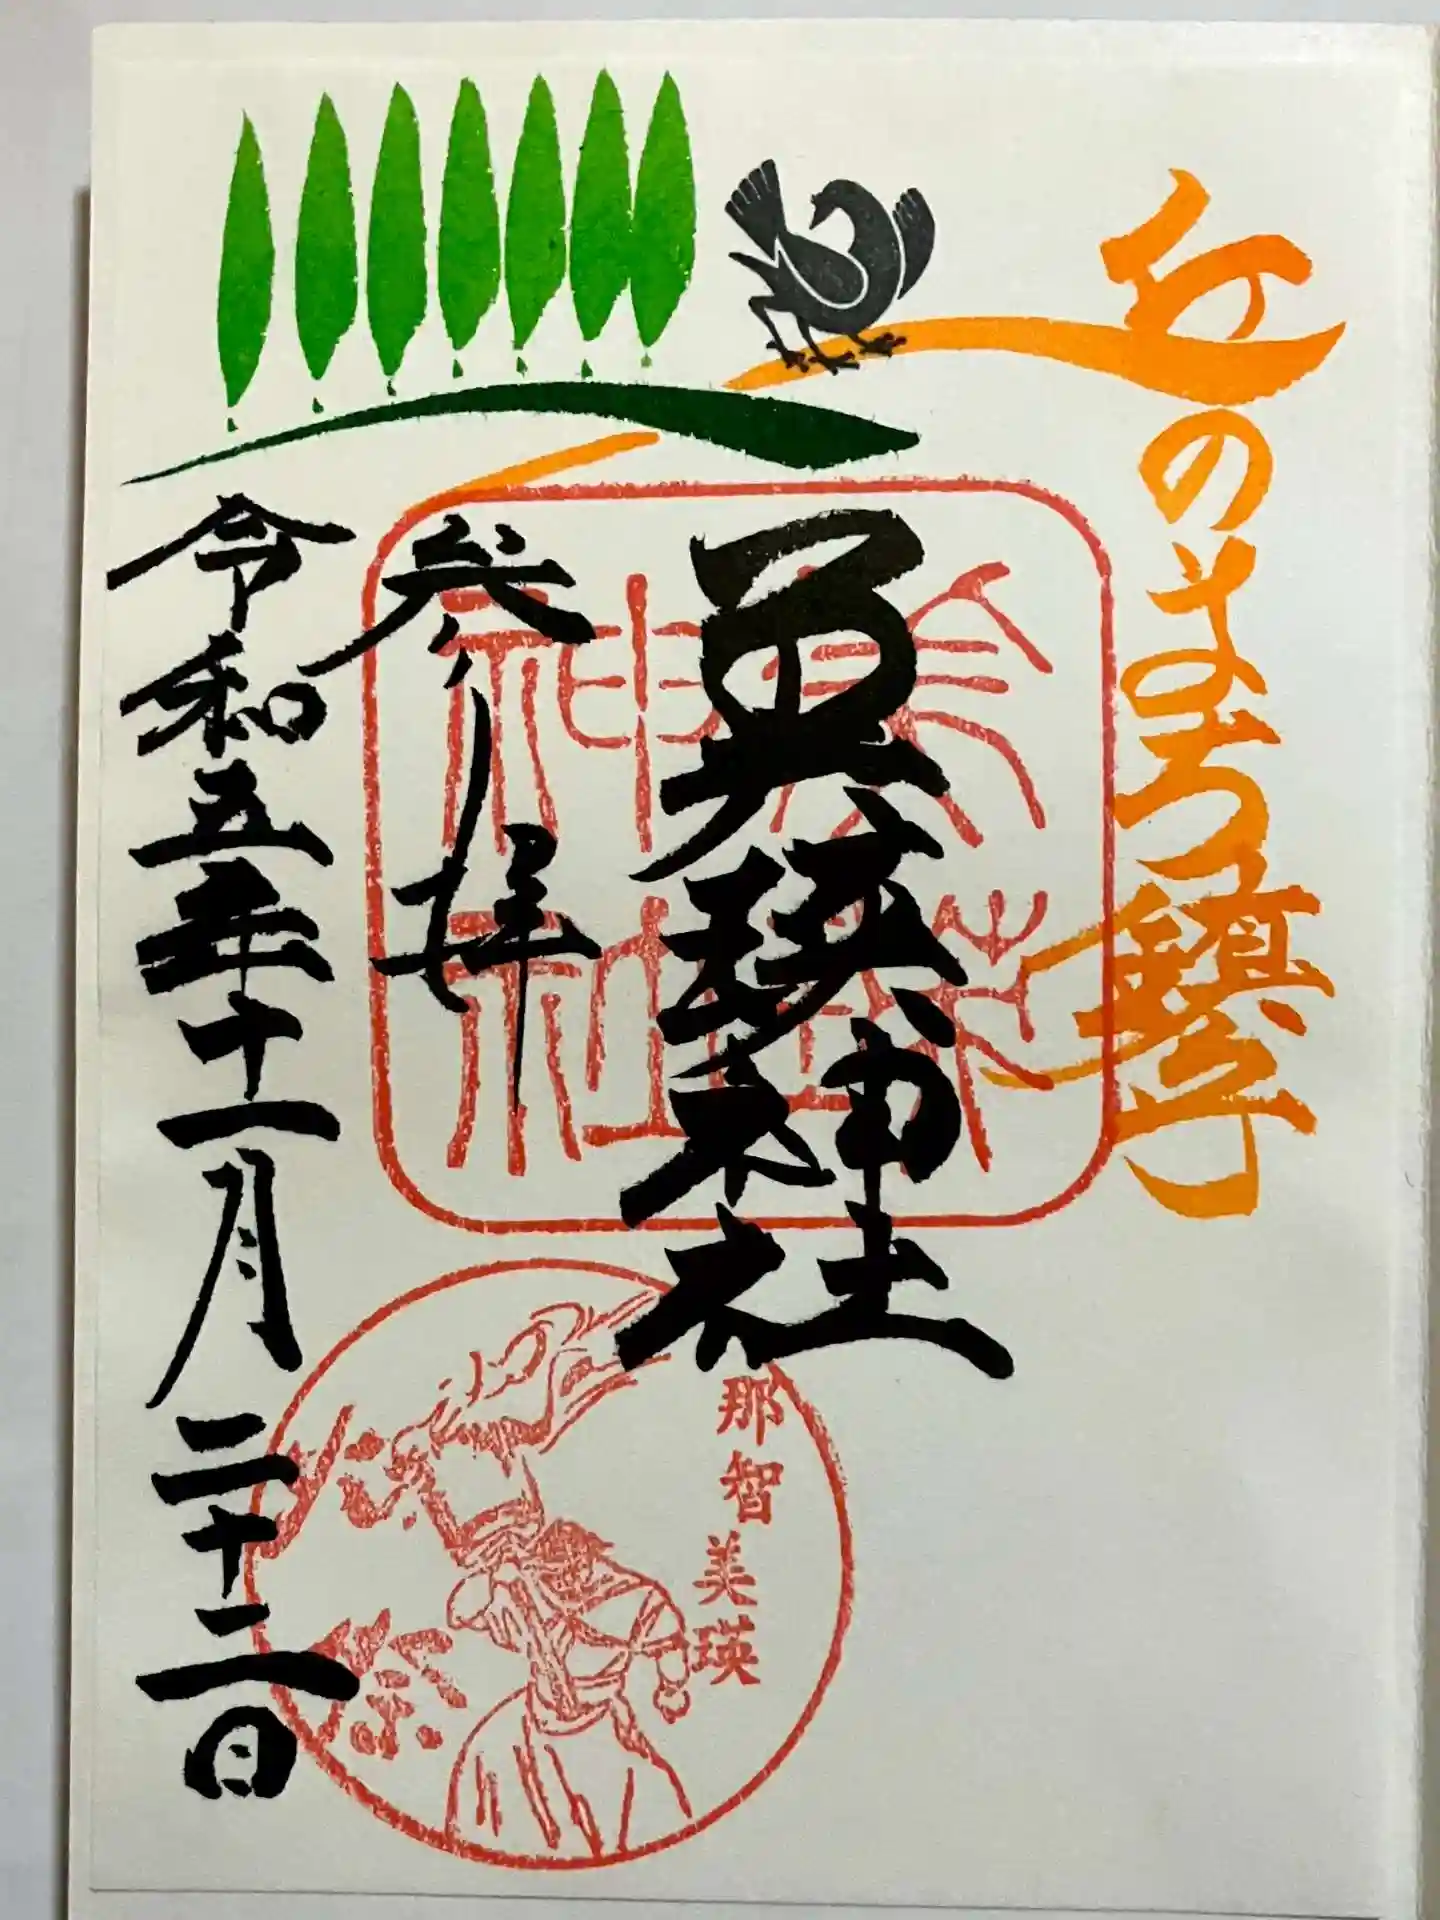 丘のまち鎮守
美瑛神社
参拝
令和五年十一月二十二日
美瑛
神社
那智
美瑛
火祭